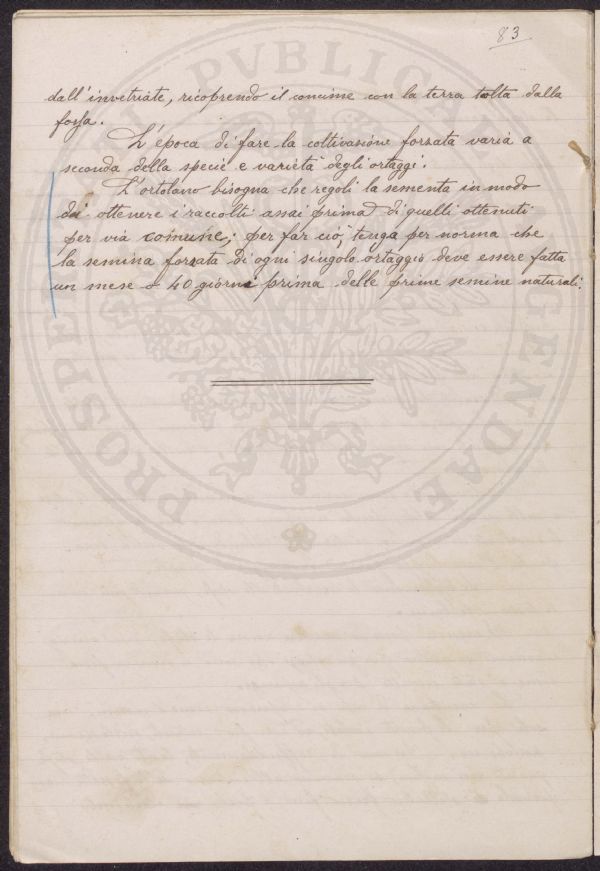 83
dall'invetriate, ricoprendo il concime con la terra tolta dalla
fossa.
L'época di fare la coltivazione forzata varia a
seconda della specie e varietà degli ortaggi.
L'ortolano bisogna che regoli la sementa in modo
da ottenere i raccolti assai prima di quelli ottenuti
per via comune; per far ciò, tenga per norma che
la semina forzata di ogni singolo ortaggio deve essere fatta
un mese o 40 giorni prima delle prime semine naturali.
PVBLICAE
PROSPERITATI
AVGENDAE